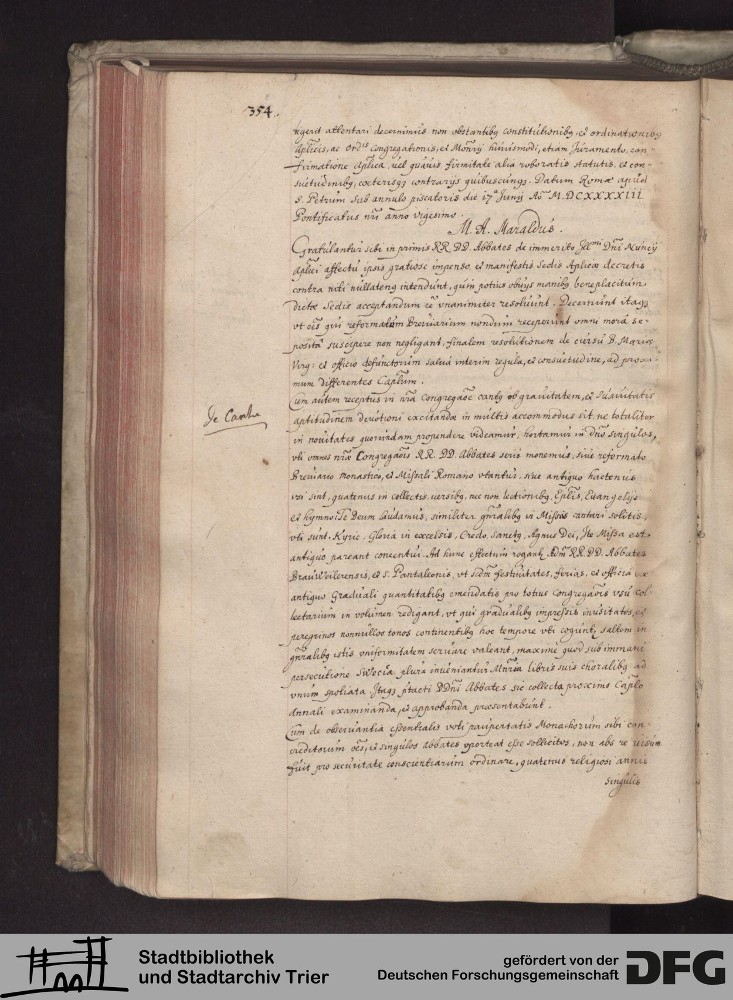 354.
tigerit attentari decernimus non obstantibq constitutionibq, et ordinationibq
Aplicis, ac Ordis Congregationis, et Monrij huiusmodi, etiam Juramento, con-
firmatione Aplica, uel quauis firmitate alia roboratis statutis, et con-
suetudinibq, coeterisqz contrarijs quibuscunqz. Datum Romæ apud
S. Petrum sub annulo piscatoris die 17 Junij Ao M.DCXXXXIII
Pontificatus nri anno vigesimo.
M. A. Maraldus.
Gratulantur sibi in primis RR DD. Abbates de immerito Illmi Dni Nuncij
Aplici affectu ipsis gratiose impenso, et manifestis Sedis Aplicæ decretis
contra niti nullatenq intendunt, quin potius obuijs manibq beneplacitum
dictæ Sedis acceptandum eē vnanimiter resoluunt. Decernunt itaqz
vt oēs qui reformatum Breuiarium nondum receperunt omni mora se-
posita suscipere non negligant, finalem resolutionem de cursu B. Mariæ
Virg: et officio defunctorum salua interim regula, et consuetudine, ad proxi-
mum differentes Caplum.
Cum autem receptus in nra Congregaōe cantq ob grauitatem, et suauitatis
de Cantu
aptitudinem deuotioni excitandæ in multis accommodus sit, ne totaliter
in nouitates quorundam propendere videamur, hortamur in Dno singulos,
vti omnes nræ Congregaōis RR. DD. Abbates serio monemus, siue reformato
Breuiario monastico, et Missali Romano vtantur, siue antiquo hactenus
vsi sint, quatenus in collectis, uersibq, nec non lectionibq, Eplis, Euangelijs
et hymno Te Deum laudamus, similiter gnralibq in Missis cantari solitis,
vti sunt, Kyrie, Gloria in excelsis, Credo, Sanctq, Agnus Dei, Ite Missa est
antiquo pareant concentui. Ad hunc effectum rogantr Adm RR. DD. Abbates
Brauweilerensis, et S. Pantaleonis, vt Scdm festiuitates, ferias, et officia ex
antiquo Graduali quantitatibq emendatis pro totius Congregaōis vsu col-
lectarium in volumen redigant, vt qui gradualibq impressis inusitatos, et
peregrinos nonnullos tonos continentibq hoc tempore vti coguntr, saltem in
gnralibq istis vniformitatem seruare valeant, maxime quod sub immani
persecutione Swecica plura inueniantur Mnria libris suis choralibq ad
vnum spoliata. Itaqz pfacti DDni Abbates sic collecta proximo Caplo
Annali examinanda, et approbanda præsentabunt.
Cum de obseruantia essentialis voti paupertatis Monachorum sibi con-
creditorum oēs, et singulos Abbates oporteat esse sollicitos, non abs re visum
fuit pro securitate conscientiarum ordinare, quatenus religiosi annis
singulis
Stadtbibliothek
und Stadtarchiv Trier
gefördert von der
Deutschen Forschungsgemeinschaft
DFG